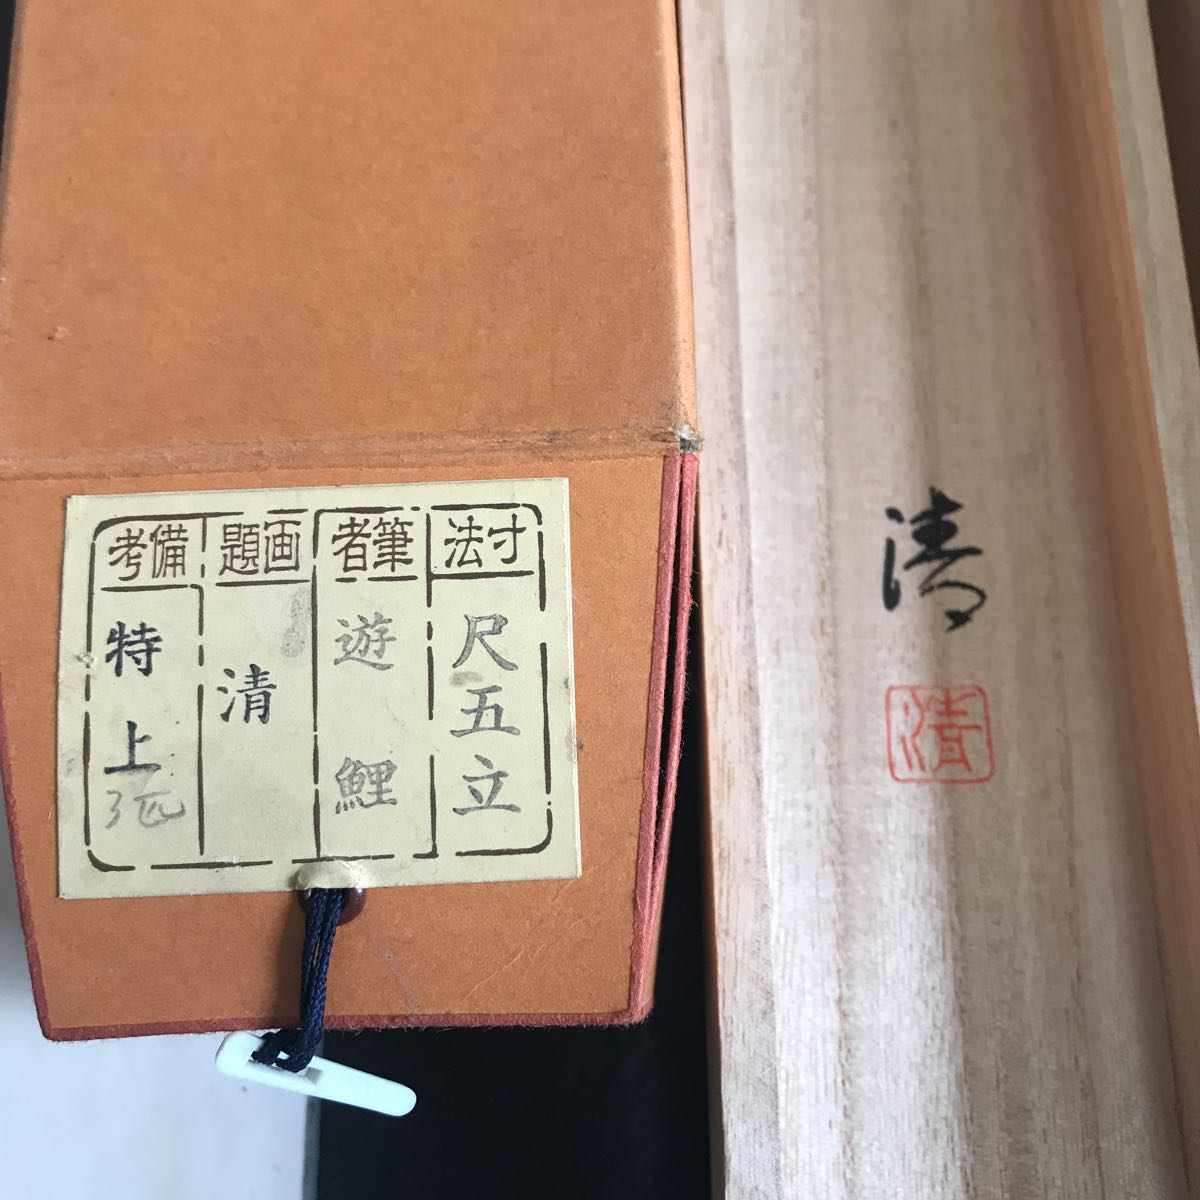 寸法
尺五立
筆者
遊鯉
画題
清
備考
特上
清
清